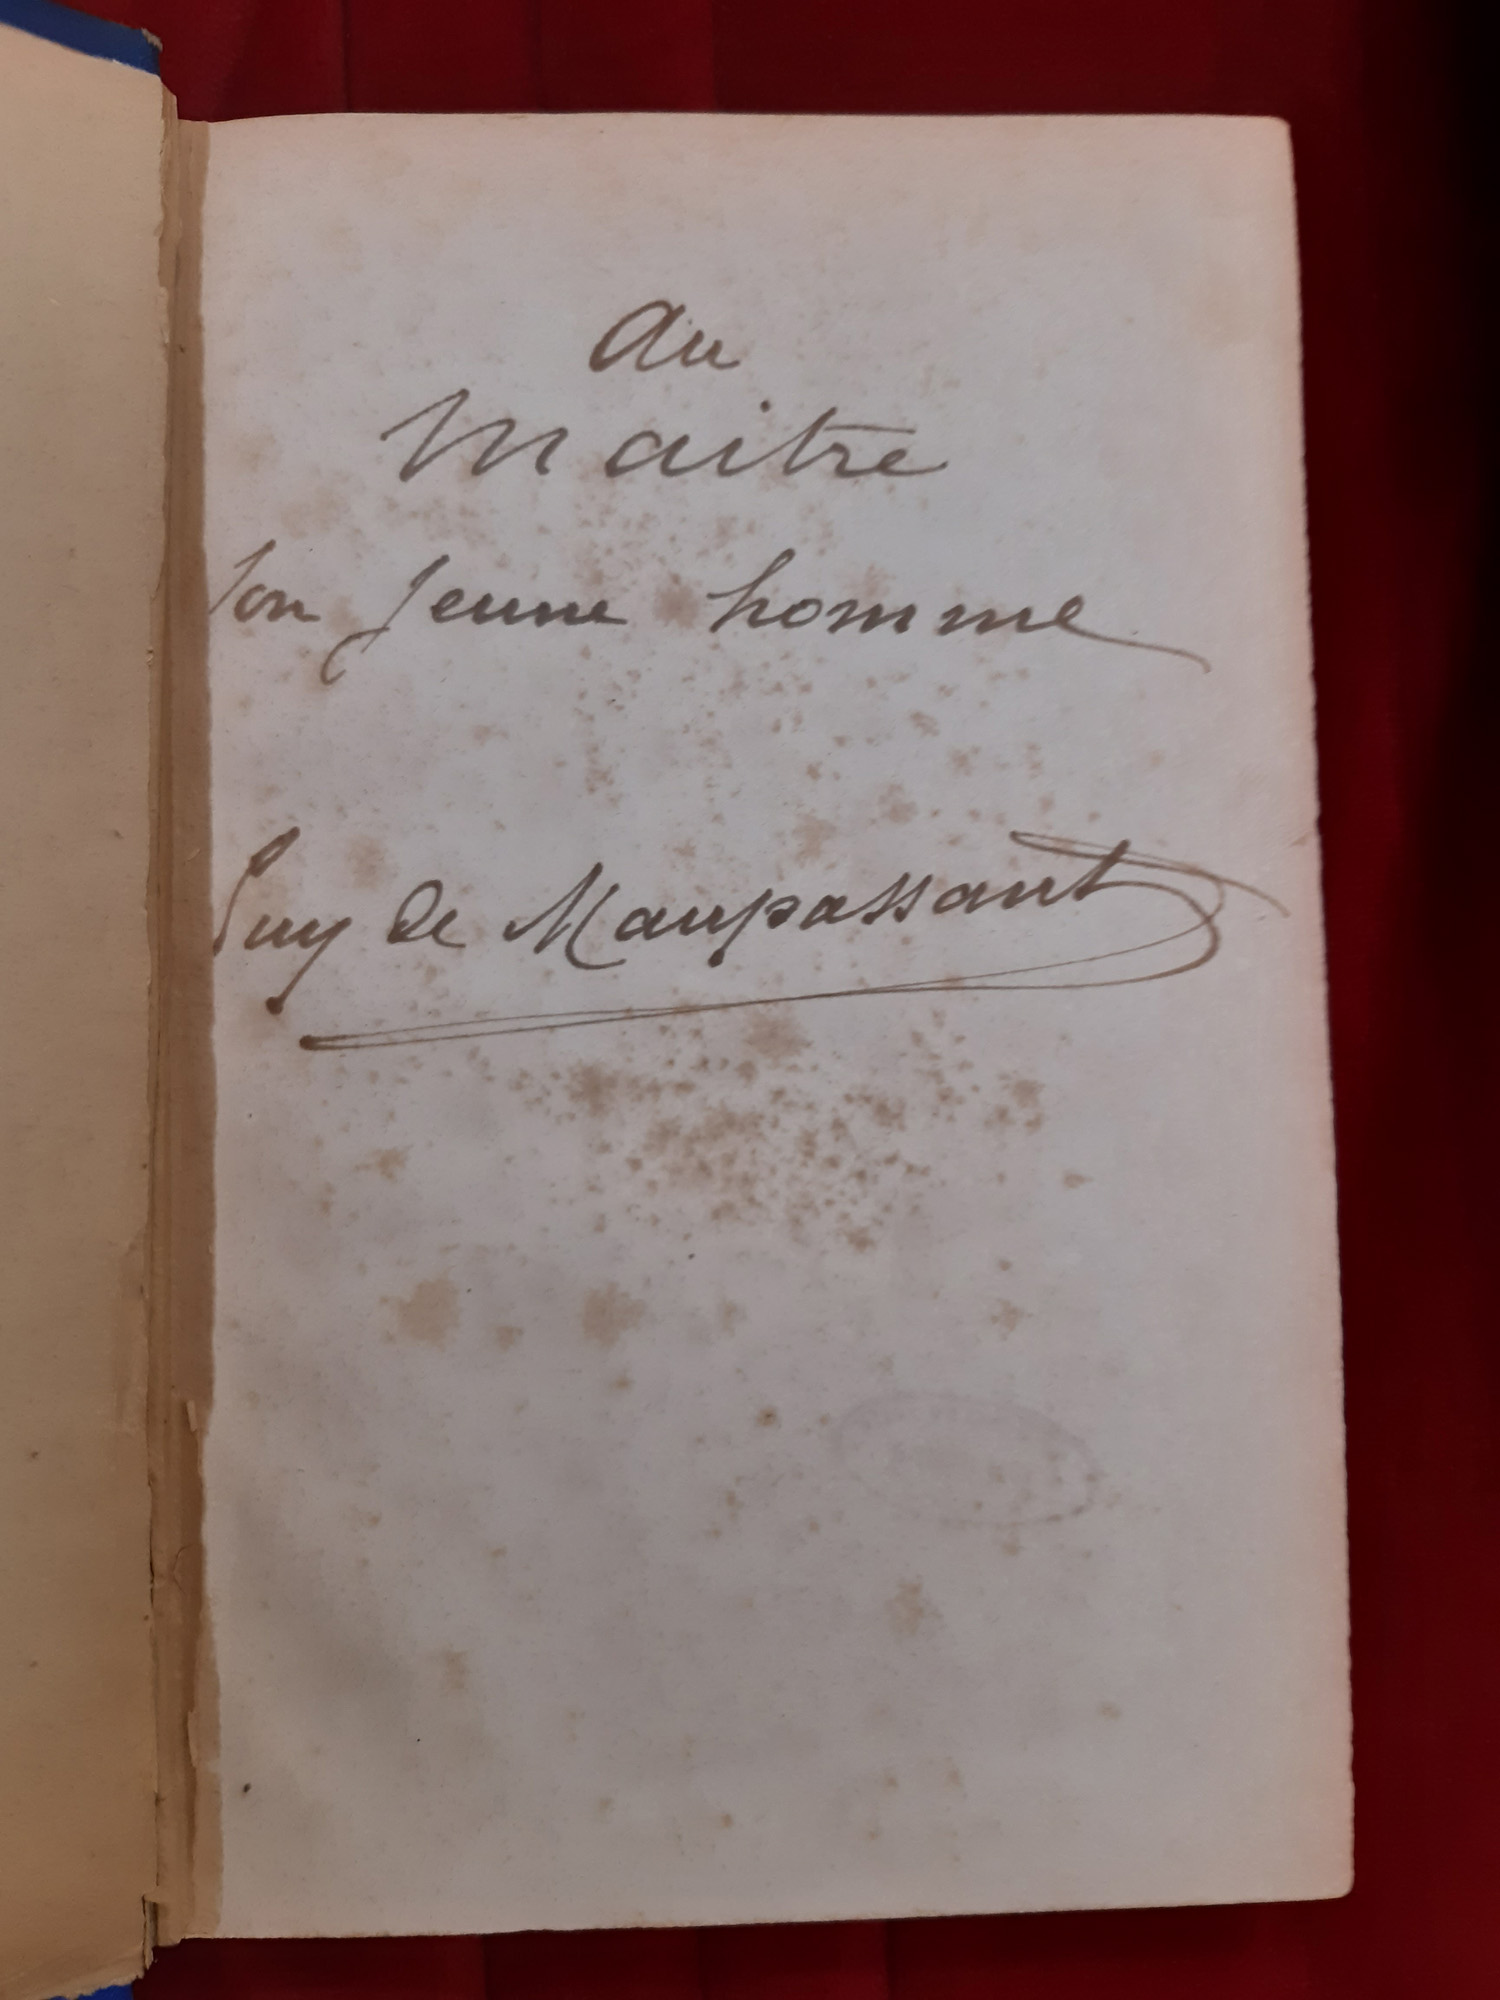 Au
Maitre
son jeune homme
Guy de Maupassant